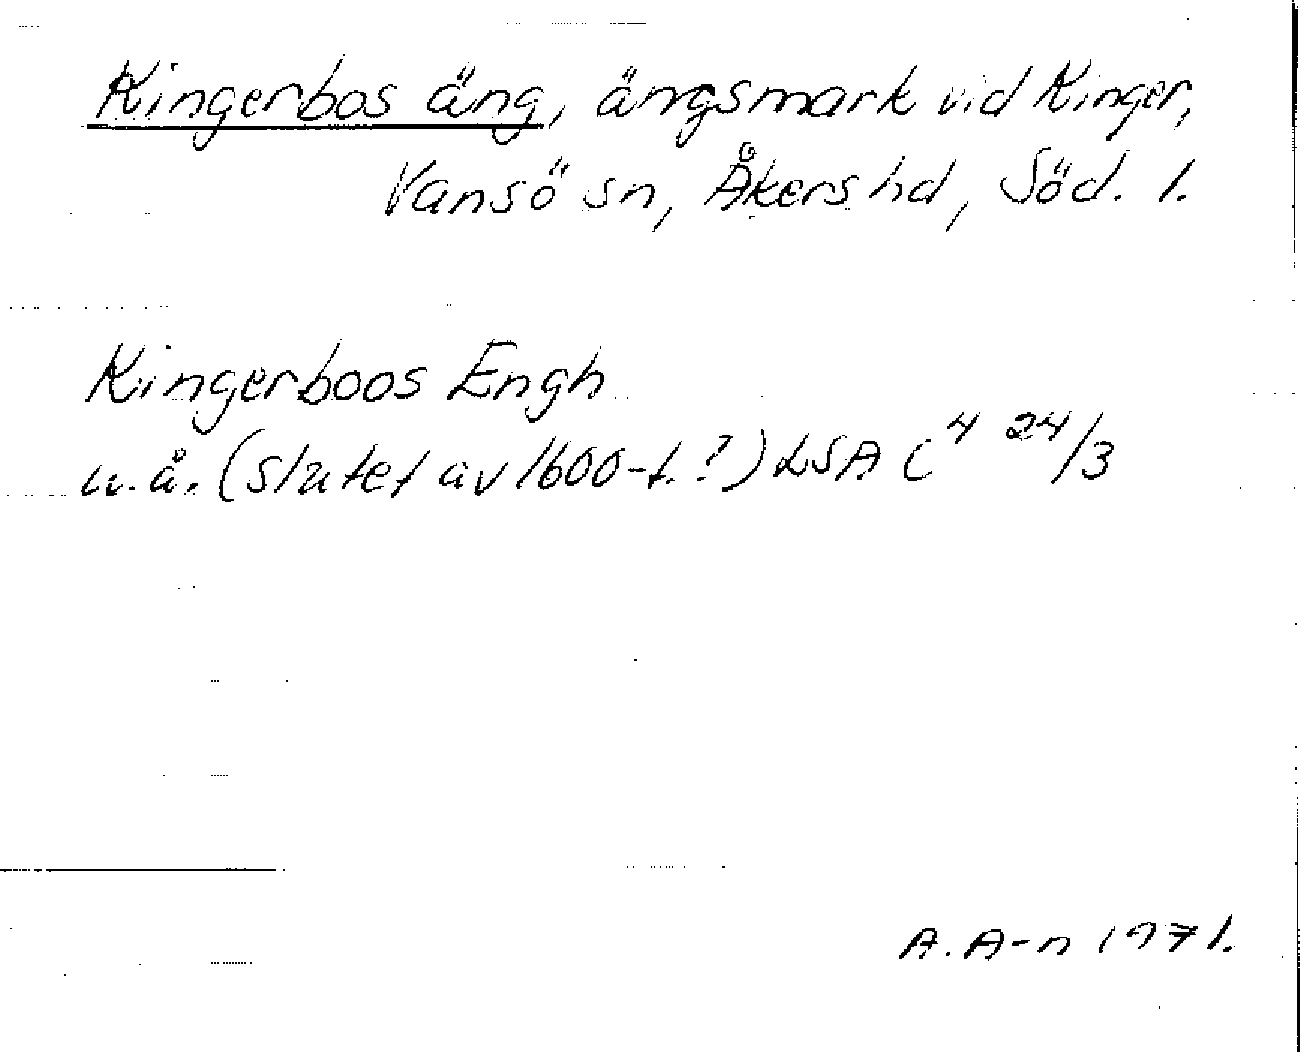 Kingerbos äng, ängsmark vid Kinger,
Vansö sn, Åkers hd, Söd. l.
Kingerboos Engh
u.å. (slutet av 1600-t.?) LSA C⁴ 24/3
A. A-n 1971.